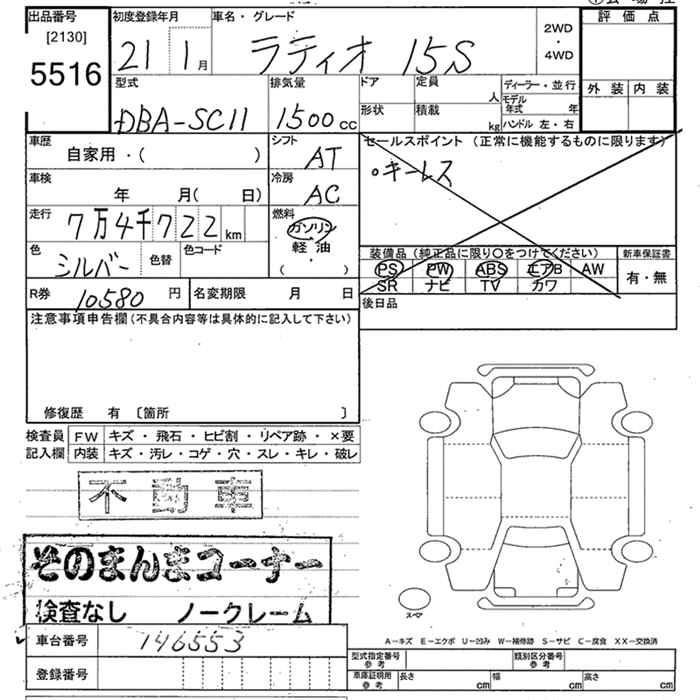 出品番号 [2130] 5516
初度登録年月 21 1月
車名・グレード ラティオ 15S
2WD・4WD
評価点
外装 内装
型式 DBA-SC11
排気量 1500cc
ドア 定員 人
形状 積載 kg
ディーラー・並行
モデル年式 年
ハンドル 左・右
車歴 自家用・( )
シフト AT
車検 年 月( 日)
冷房 AC
走行 7万4千722km
燃料 ガソリン 軽油 ( )
色 シルバー 色替 色コード
セールスポイント (正常に機能するものに限ります)
○キーレス
装備品(純正品に限り○をつけてください)
PS PW ABS エアB AW
SR ナビ TV カワ
新車保証書
有・無
R券 10580円
名変期限 月 日
後日品
注意事項申告欄(不具合内容等は具体的に記入して下さい)
修復歴 有〔箇所 〕
検査員記入欄
FW キズ・飛石・ヒビ割・リペア跡・×要
内装 キズ・汚レ・コゲ・穴・スレ・キレ・破レ
不動車
そのまんまコーナー
検査なし ノークレーム
車台番号 146553
登録番号
スペア
A-キズ E-エクボ U-凹み W-補修跡 S-サビ C-腐食 XX-交換済
型式指定番号 参考
類別区分番号 参考
車庫証明用 参考 長さ cm 幅 cm 高さ cm